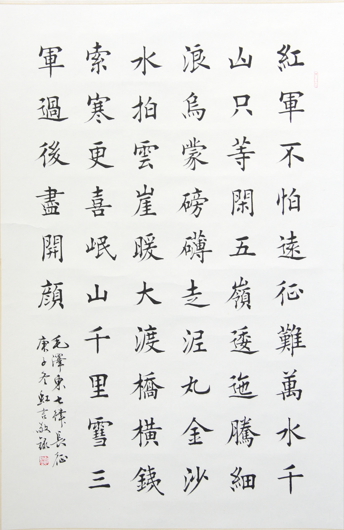 紅軍不怕遠征難萬水千
山只等閑五嶺逶迤騰細
浪烏蒙磅礴走泥丸金沙
水拍雲崖暖大渡橋橫鐵
索寒更喜岷山千里雪三
軍過後盡開顏
毛澤東七律長征
庚子冬虹言敬錄